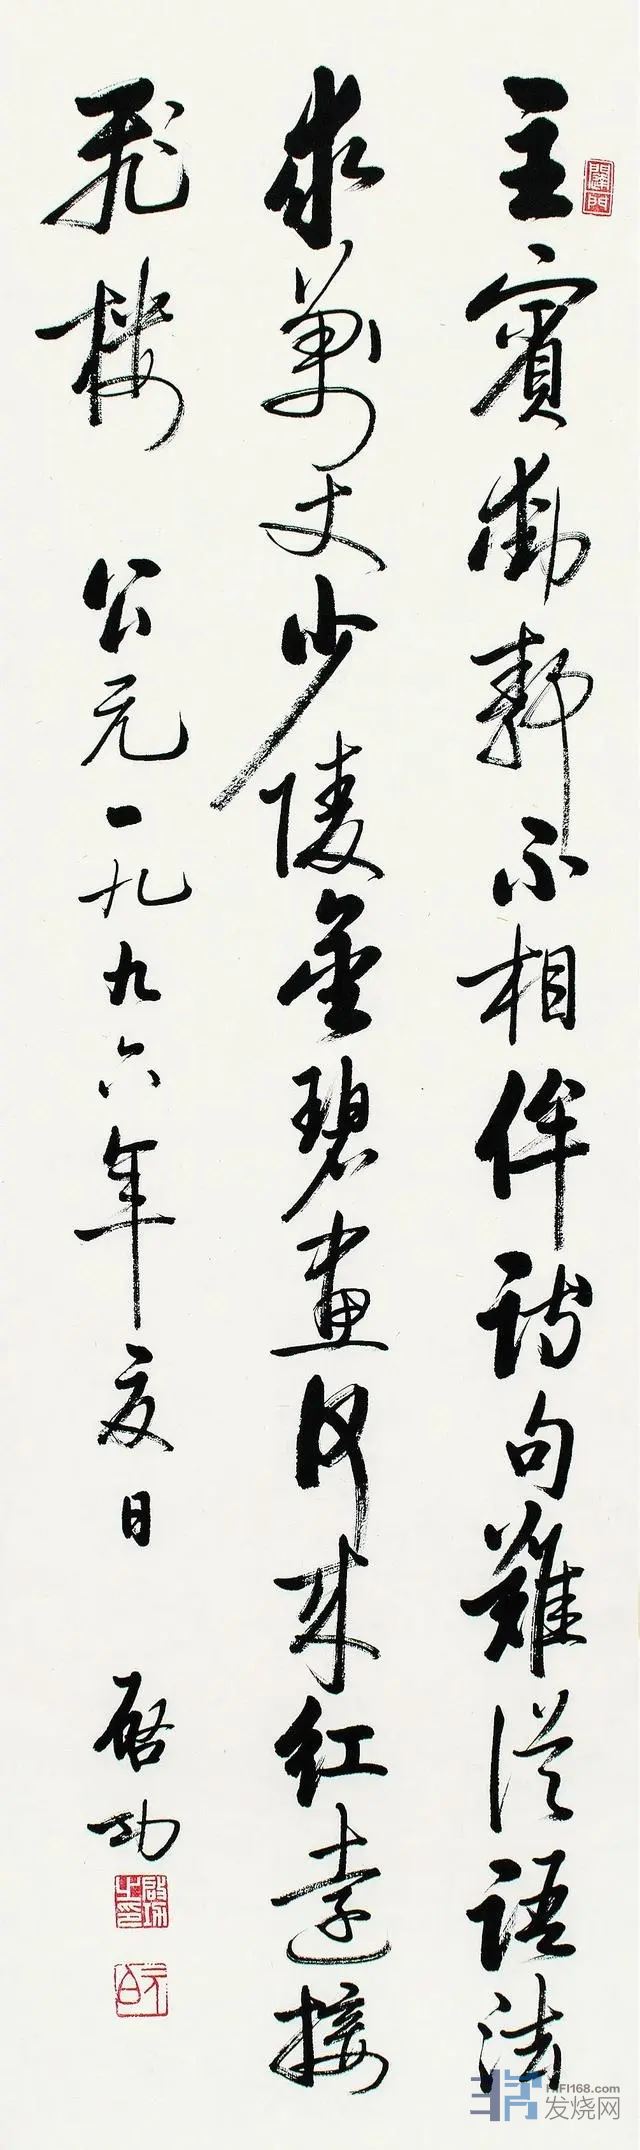 主賓動靜不相侔詩句難從語法
求萬丈少陵金碧畫何来紅遠接
飛樓 公元一九九六年夏日 啟功
啟功之印
元白
HIFI168.com
发烧网